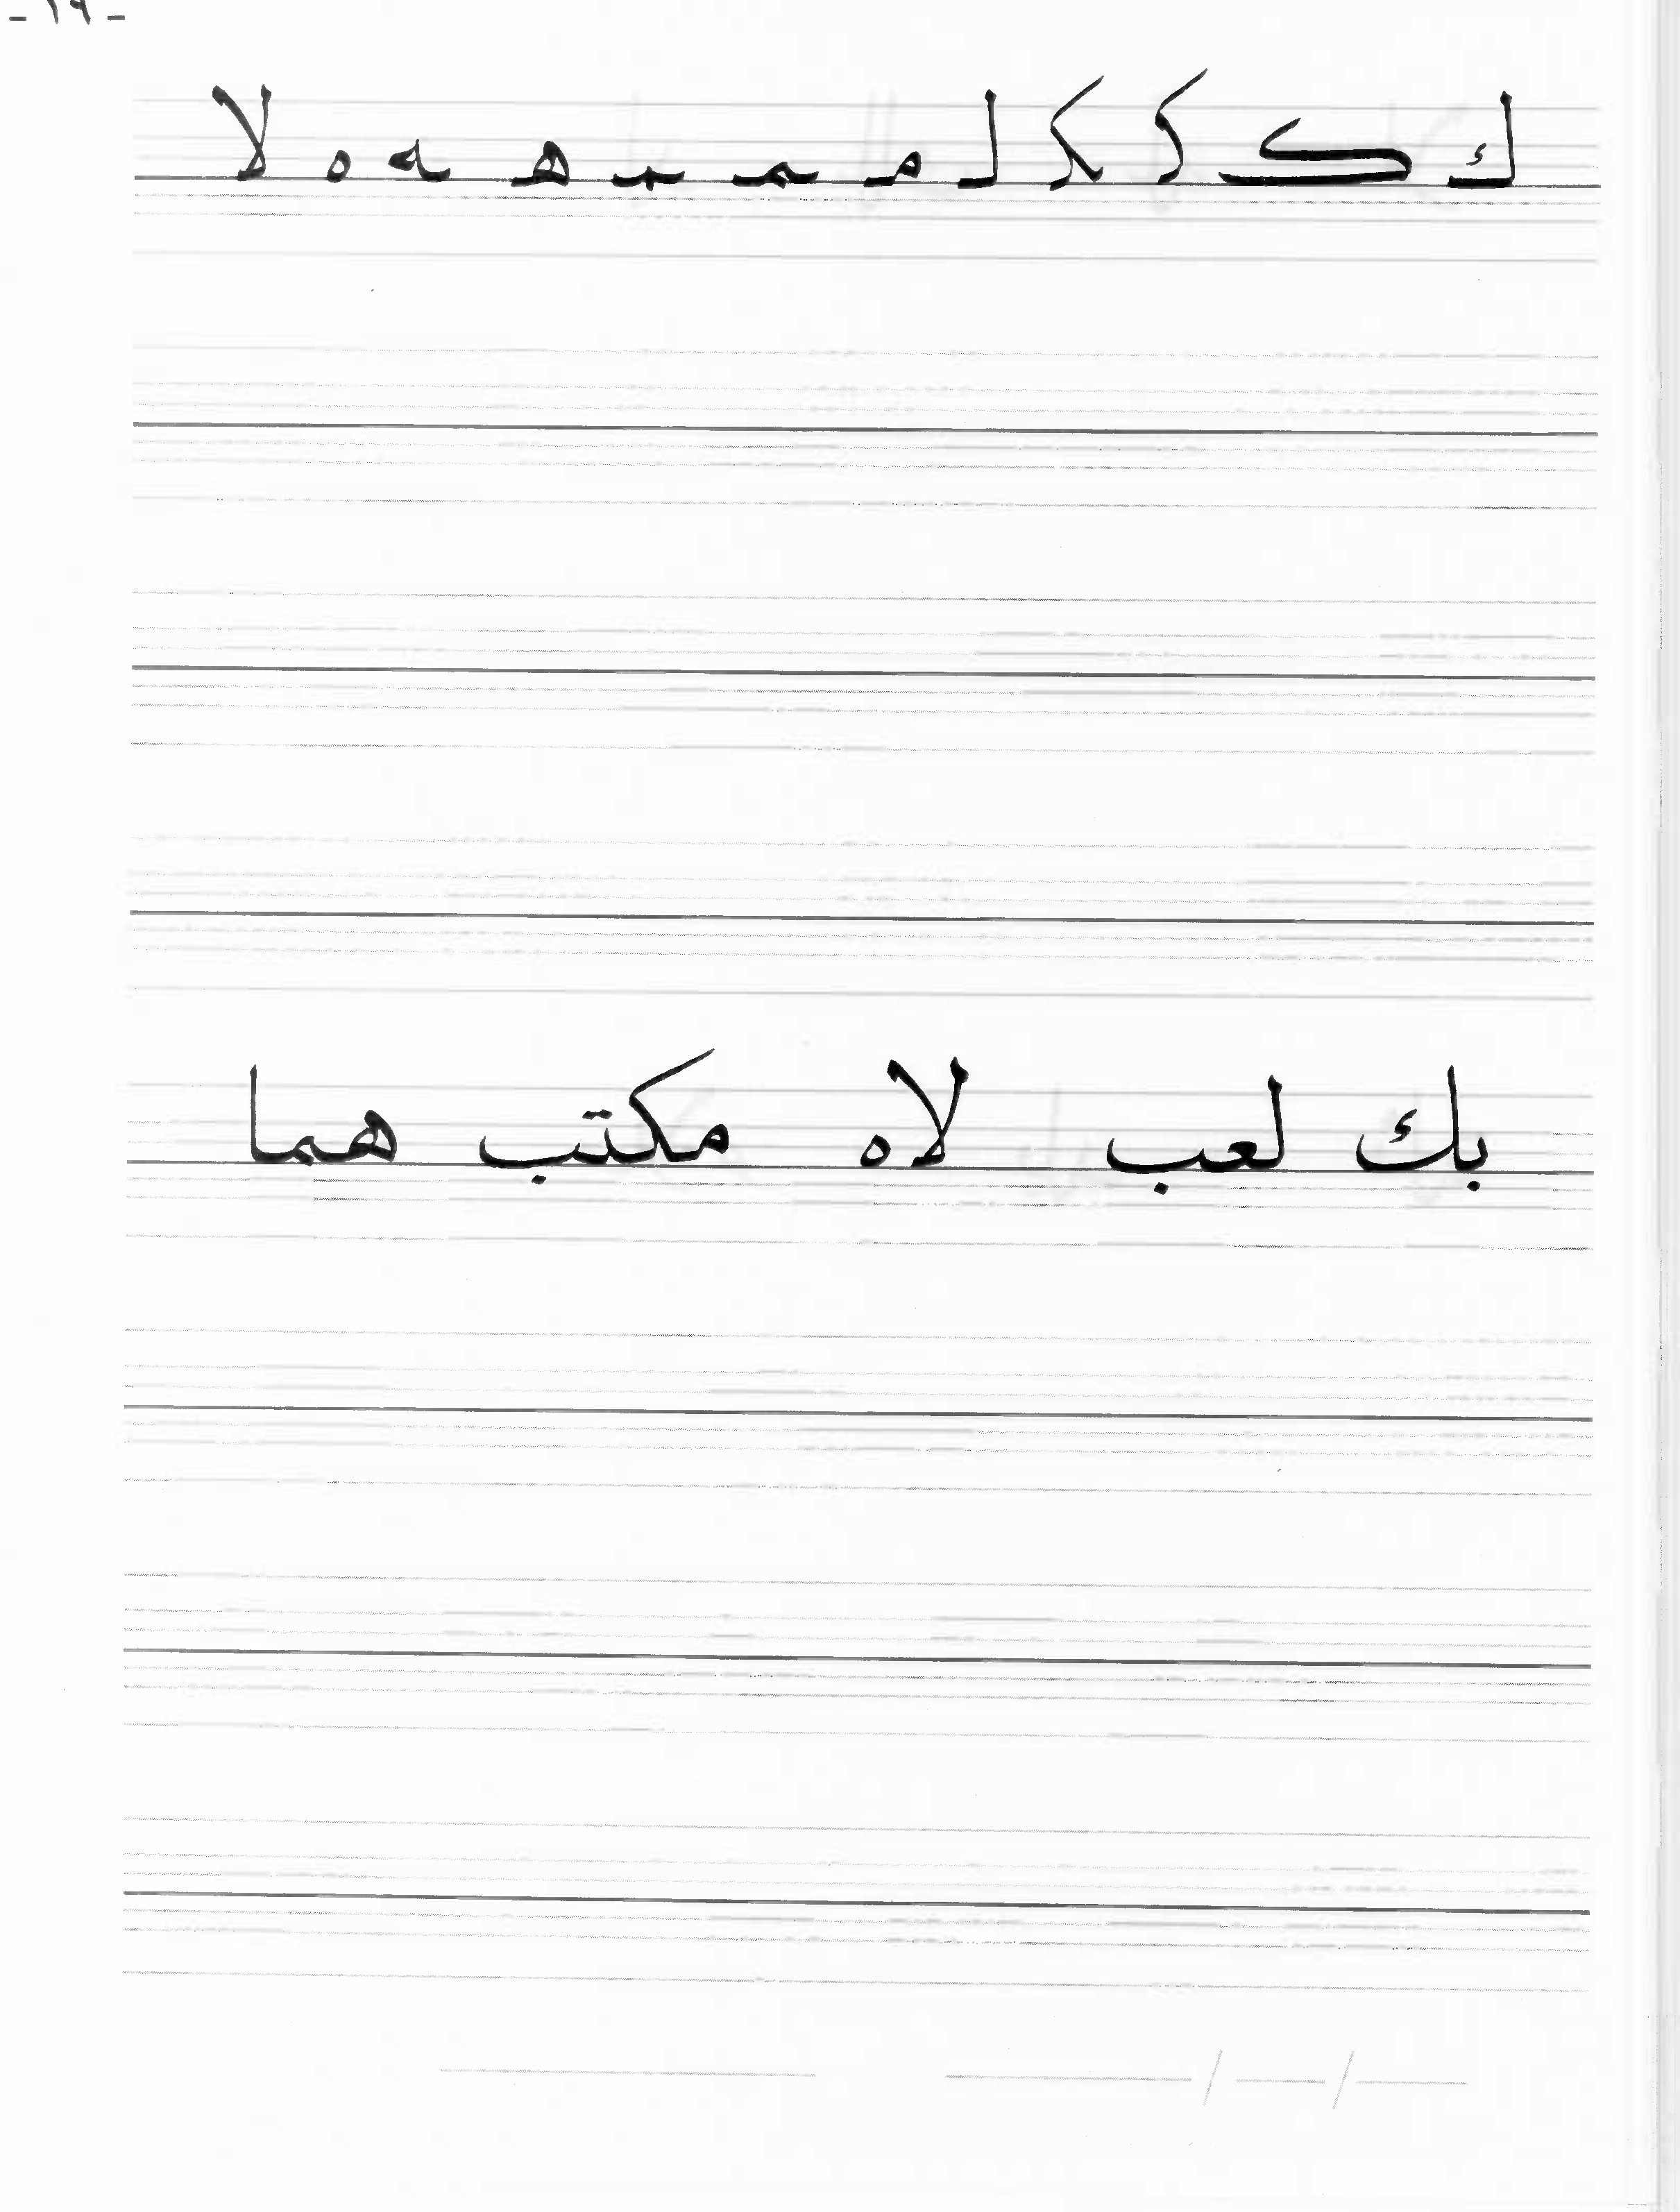 - ١٩ -
ك ك ك ك ل م م م ه ه ه لا
بك لعب لاه مكتب هما